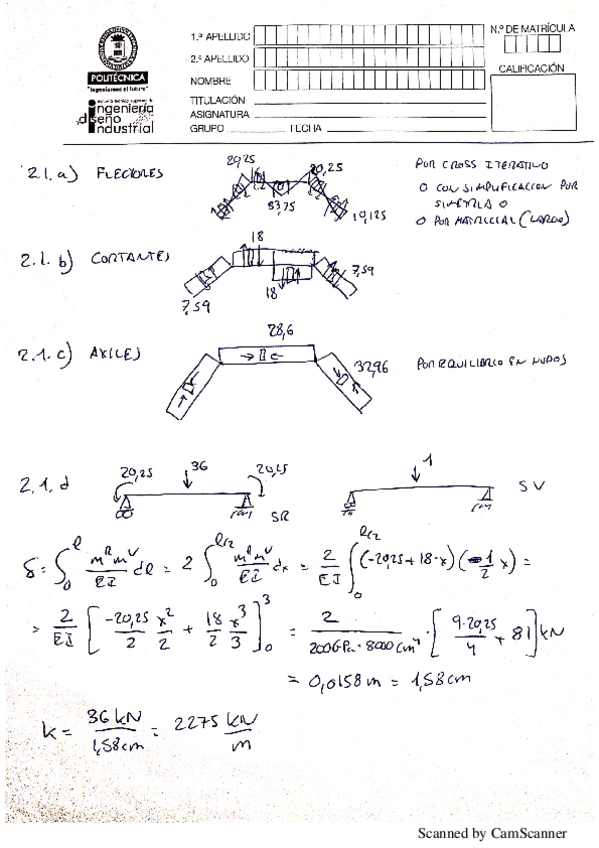 POLITÉCNICA
"Ingeniamos el futuro"
escuela técnica superior de
ingeniería
diseño
industrial
1.º APELLIDO
2.º APELLIDO
NOMBRE
TITULACIÓN
ASIGNATURA
GRUPO FECHA
N.º DE MATRÍCULA
CALIFICACIÓN
2.1. a) FLECTORES
20,25
20,25
33,75
10,125
POR CROSS ITERATIVO
O CON SIMPLIFICACION POR
SIMETRIA O
O POR MATRICIAL (LARGO)
2.1. b) CORTANTES
18
18
7,59
7,59
2.1. c) AXILES
28,6
32,96
POR EQUILIBRIO EN NUDOS
2.1. d
20,25
36
20,25
SR
1
SV
δ = ∫₀^l (m^R m^V / EI) dl = 2 ∫₀^{l/2} (m^R m^V / EI) dx = 2/EI ∫₀^{l/2} (-20,25 + 18·x) (1/2 x) =
= 2/EI [ -20,25/2 x²/2 + 18/2 x³/3 ]₀³ = 2 / (200GPa · 8000cm⁴) · [ 9·20,25/4 + 81 ] kN
= 0,0158 m = 1,58 cm
k = 36 kN / 1,58 cm = 2275 kN/m
Scanned by CamScanner